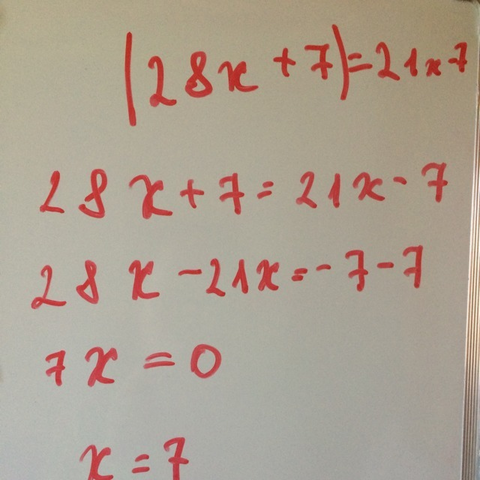 |28x+7|=21x-7
28x+7=21x-7
28x-21x=-7-7
7x=0
x=7